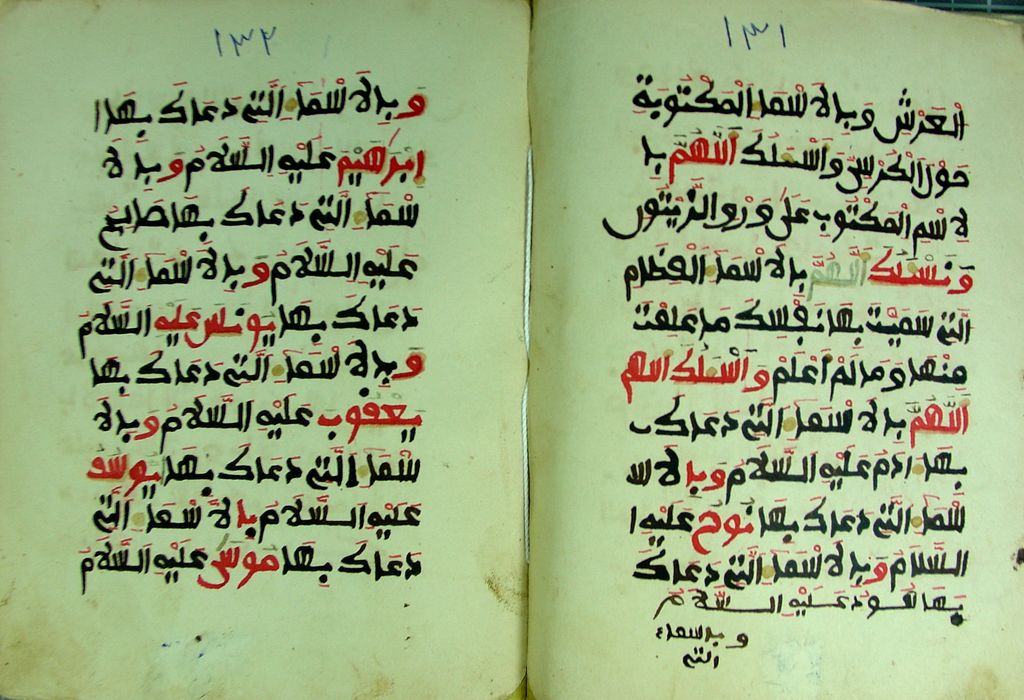 ١٣١
الْعَرْشِ وَبِالَاسْمَا الْمَكْتُوبَةِ
حَوْلَ الْكُرْسِيِّ وَاَسْئَلُكَ اللَّهُمَّ بِا
لِاسْمِ الْمَكْتُوبِ عَلَى وَرَقِ الزَّيْتُونِ
وَنَسْئَلُكَ اللَّهُمَّ بِالَاسْمَا الْعِظَامِ
الَّتِي سَمَيْتَ بِهَا نَفْسِكَ مَا عَلِمْتَ
مِنْهَا وَمَا لَمْ اَعْلَمْ وَاَسْئَلُكَ اللهم
اللَّهُمَّ بِالَاسْمَا الَّتِي دَعَاكَ ب
بِهَا ادَمُ عَلَيْهِ السَّلَامُ وَبِالَاس
سْمَا الَّتِي دَعَاكَ بِهَا نُوحُ عَلَيْهِ ا
السَّلَامُ وَبِالَاسْمَا الَّتِي دَعَاكَ
بِهَا هُودُ عَلَيْهِ السَّلَامُ
و بالاسماء
التي
١٣٢
وَبِالَاسْمَا الَّتِي دَعَاكَ بِهَا
اِبْرَاهِيْمُ عَلَيْهِ السَّلَامُ وَبِالَا
سْمَا الَّتِي دَعَاكَ بِهَا صَالِحُ
عَلَيْهِ السَّلَامُ وَبِالَاسْمَا الَّتِي
دَعَاكَ بِهَا يُونُسُ عَلَيْهِ السَّلَامُ
وَبِالَاسْمَا الَّتِي دَعَاكَ بِهَا
يَعْقُوبُ عَلَيْهِ السَّلَامُ وَبِالَا
سْمَا الَّتِي دَعَاكَ بِهَا يُوسُفُ
عَلَيْهِ السَّلَامُ بِالَاسْمَا الَّتِي
دَعَاكَ بِهَا مُوسَى عَلَيْهِ السَّلَامُ